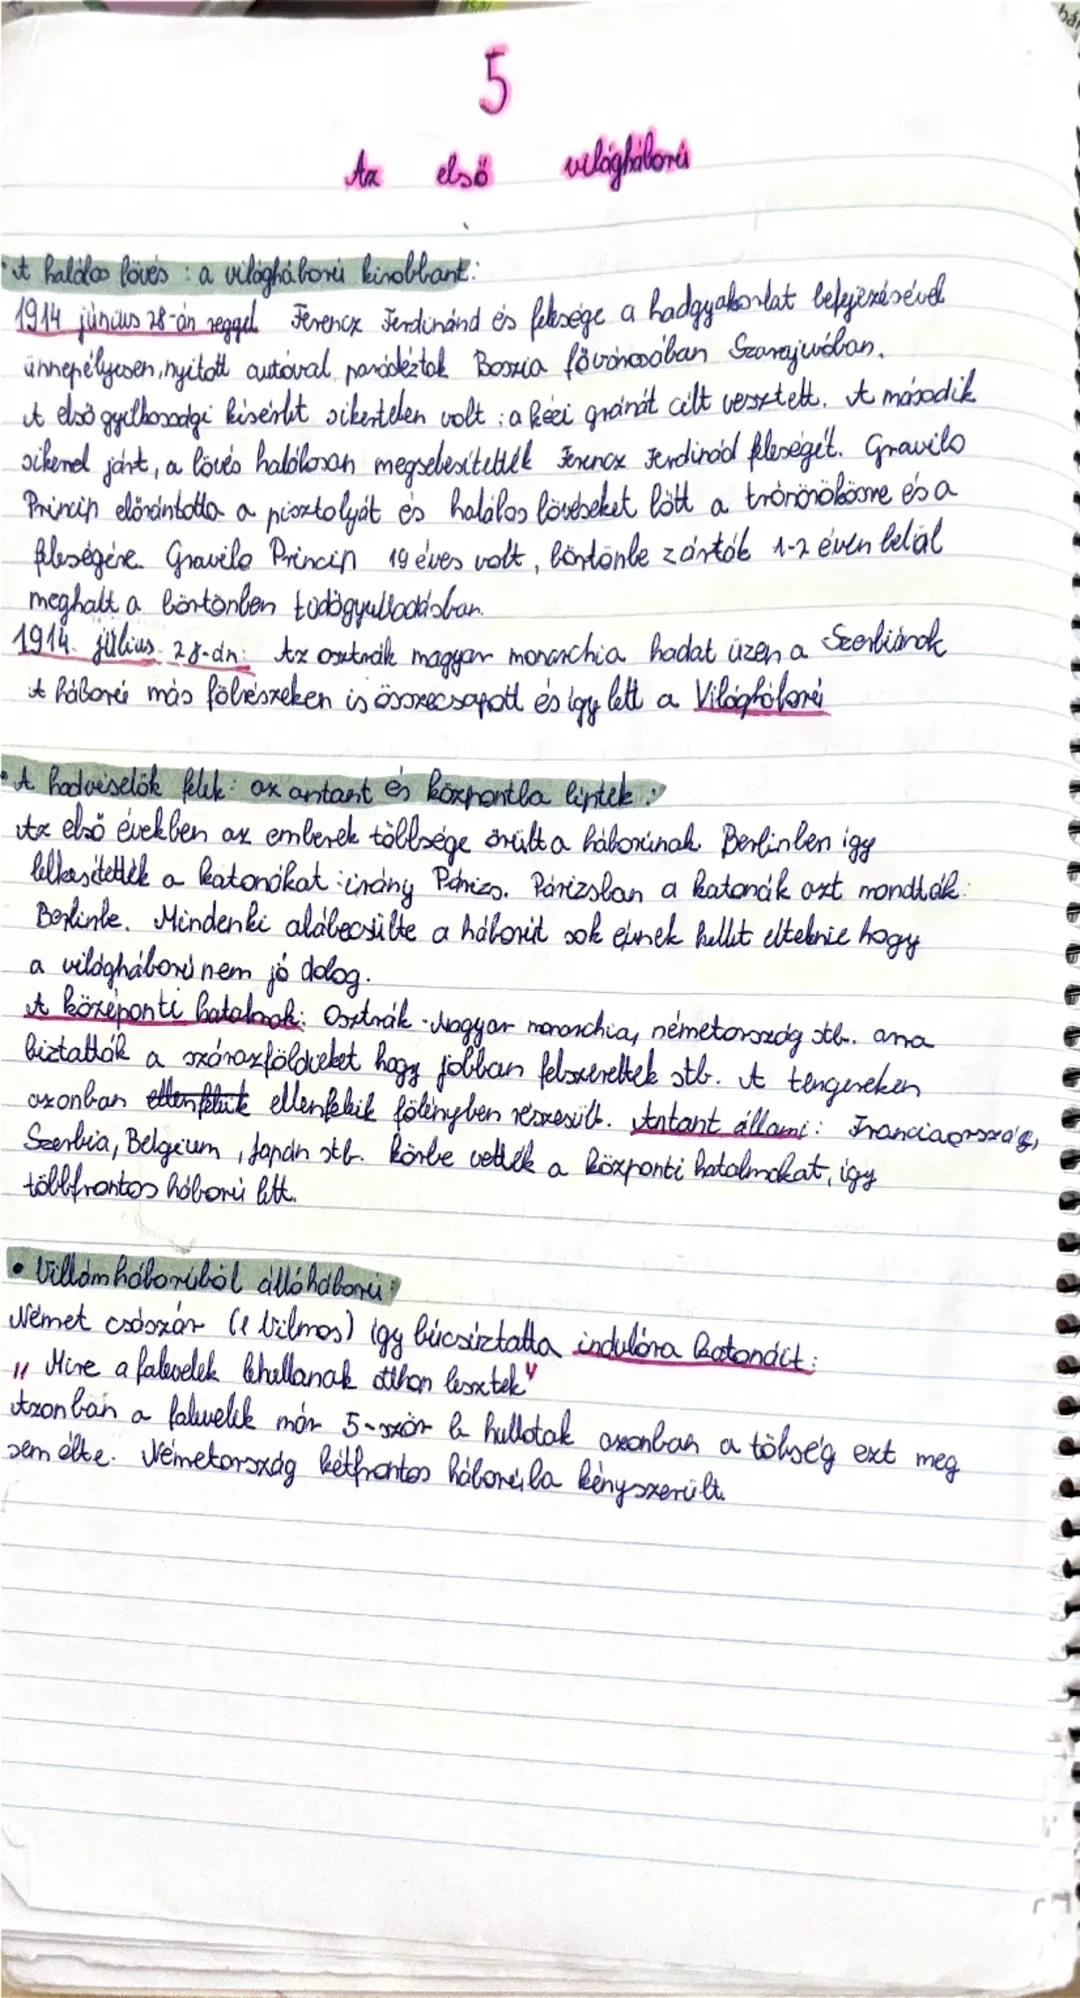 5
Az első világháború
• A halálos lövés : a világháború kirobbant:
1914 június 28-án reggel Ferencz Ferdinánd és felesége a hadgyakorlat befejezésével
ünnepélyesen, nyitott autóval parádéztak Bosznia fővárosában Szarajevóban.
A első gyilkossági kisérlet sikertelen volt : a kézi gránát célt vesztett. A második
sikerrel járt, a lövés halálosan megsebesítették Ferencz Ferdinád fleségét. Gravilo
Princip előrántotta a pisztolyát és halálos lövéseket lőtt a trónörökösre és a
fleségére. Gravilo Princip 19 éves volt, börtönbe zárták 1-2 éven belül
meghalt a börtönben tüdőgyulladásban.
1914. július 28-án: Az osztrák magyar monarchia hadat üzen a Szerbiának
A háború más fölrészeken is összecsapott és így lett a Világháború
• A hadviselők felek: az antant és központba léptek :
Az első években az emberek többsége örült a háborúnak. Berlinben így
lelkesítették a katonákat : irány Párizs. Párizsban a katonák azt mondták:
Berlinbe. Mindenki alábecsülte a háborút sok évnek kellet eltelnie hogy
a világháború nem jó dolog.
A központi hatalmak: Osztrák-Magyar monarchia, németország stb. arra
biztatták a szárazföldieket hogy jobban felszereltek stb. A tengereken
azonban ellenfelük ellenfeleik fölényben részesült. Antant állami: Franciaország,
Szerbia, Belgium, Japán stb. körbe vették a központi hatalmakat, így
többfrontos háború lett.
• Villámháborúból állóháború:
Német császár (I Vilmos) így búcsúztatta indulóra katonáit:
" Mire a falevelek lehullanak otthon lesztek"
Azonban a falevelek már 5-ször le hullotak azonban a tölség ezt meg
sem élte. Németország kétfrontos háborúba kényszerült.